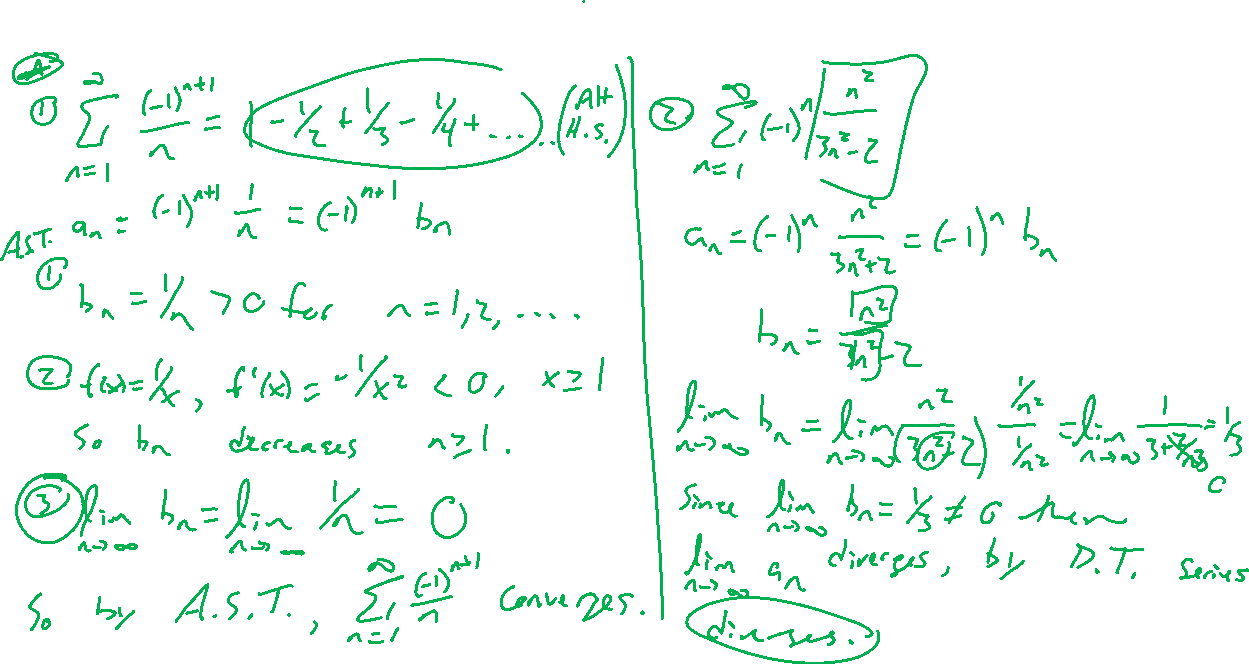 ① ∑_{n=1}^{∞} (-1)^{n+1}/n = 1 - 1/2 + 1/3 - 1/4 + ..... (Alt H.S.)
A.S.T. a_n = (-1)^{n+1} 1/n = (-1)^{n+1} b_n
① b_n = 1/n > 0 for n = 1, 2, ....
② f(x) = 1/x, f'(x) = -1/x² < 0, x ≥ 1
So b_n decreases n ≥ 1.
③ lim_{n→∞} b_n = lim_{n→∞} 1/n = 0
So by A.S.T., ∑_{n=1}^{∞} (-1)^{n+1}/n converges.
② ∑_{n=1}^{∞} (-1)^n n²/(3n²-2)
a_n = (-1)^n n²/(3n²+2) = (-1)^n b_n
b_n = n²/(3n²-2)
lim_{n→∞} b_n = lim_{n→∞} n²/(3n²-2) (1/n²)/(1/n²) = lim_{n→∞} 1/(3+2/n²) = 1/3
0
Since lim_{n→∞} b_n = 1/3 ≠ 0 then
lim_{n→∞} a_n diverges, by D.T. series
diverges.